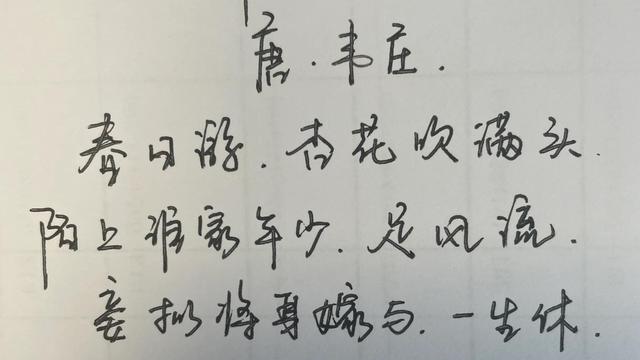 唐.韦庄.
春日游.杏花吹满头.
陌上谁家年少.足风流.
妾拟将身嫁与.一生休.